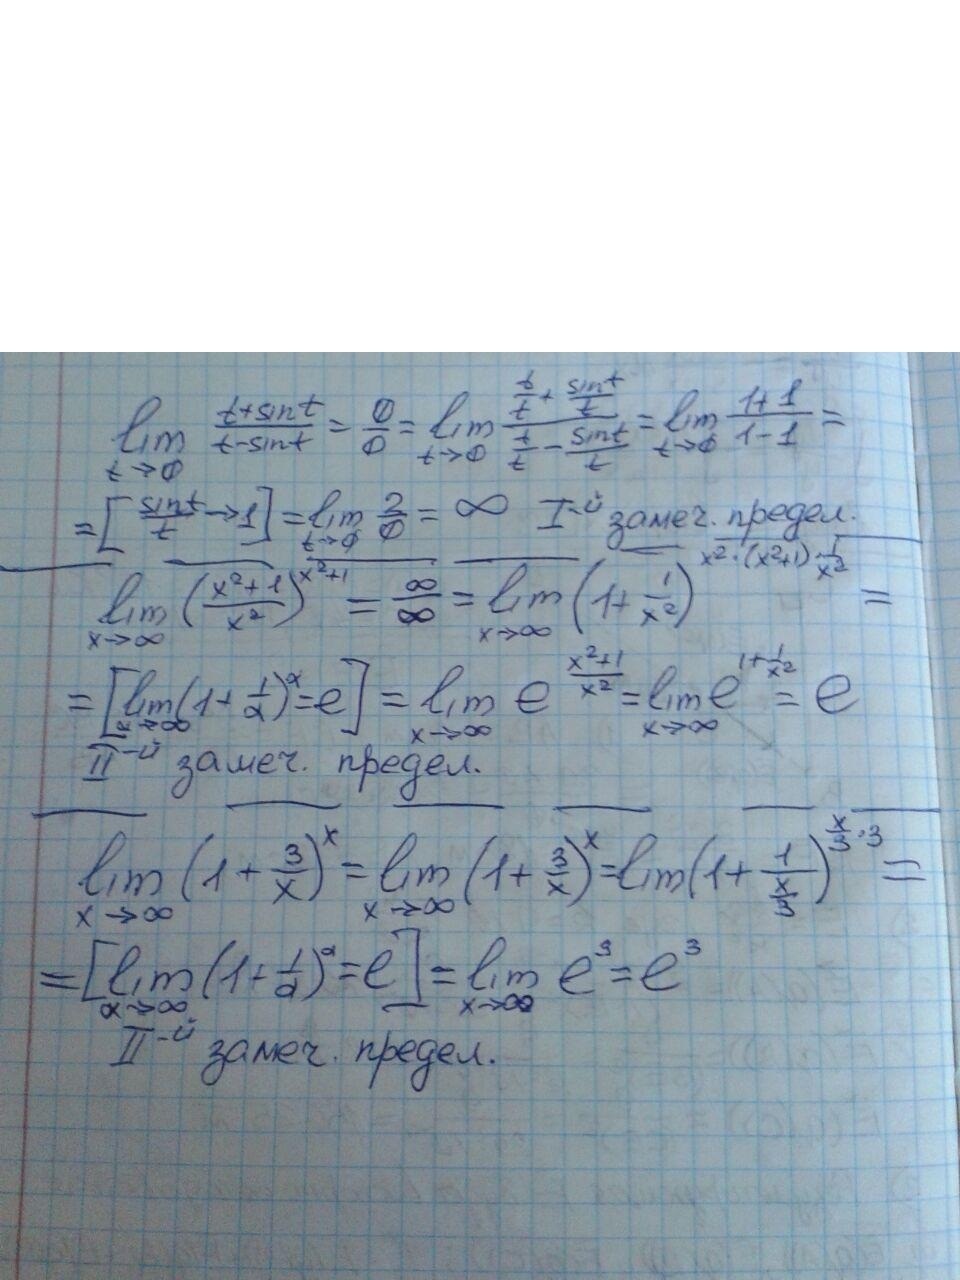 lim t→0 (t+sint)/(t-sint) = 0/0 = lim t→0 (t/t + sint/t)/(t/t - sint/t) = lim t→0 (1+1)/(1-1) =
= [sint/t → 1] = lim t→0 2/0 = ∞ I-й замеч. предел.
lim x→∞ ((x²+1)/x²)^(x²+1) = ∞/∞ = lim x→∞ (1+1/x²)^(x²·(x²+1)·1/x²) =
= [lim α→∞ (1+1/α)^α = e] = lim x→∞ e^((x²+1)/x²) = lim x→∞ e^(1+1/x²) = e
II-й замеч. предел.
lim x→∞ (1+3/x)^x = lim x→∞ (1+3/x)^x = lim (1+1/(x/3))^(x/3·3) =
= [lim α→∞ (1+1/α)^α = e] = lim x→∞ e³ = e³
II-й замеч. предел.